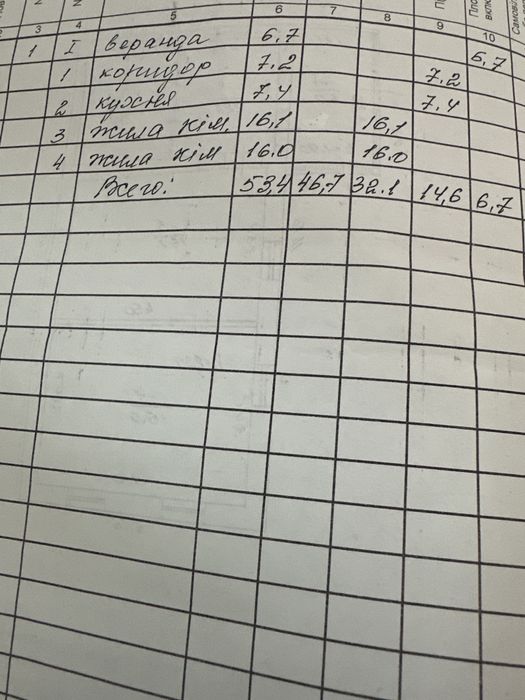 3 4 5 6 7 8 9 10
1 I веранда 6,7 6,7
1 коридор 7.2 7.2
2 кухня 7,4 7.4
3 жила кім. 16,1 16,1
4 жила кім 16.0 16.0
Всего: 53,4 46,7 32.1 14,6 6,7